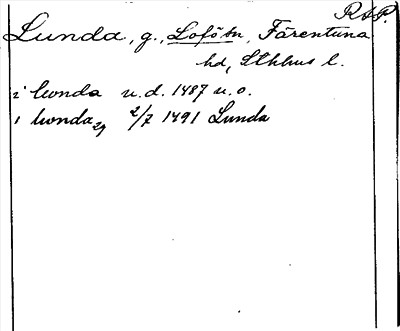 R A P.
Lunda, g., Lofö sn, Färentuna
hd, Sthlms l.
i lwnda u.d. 1487 u.o.
i lwnda 29 2/7 1491 Lunda